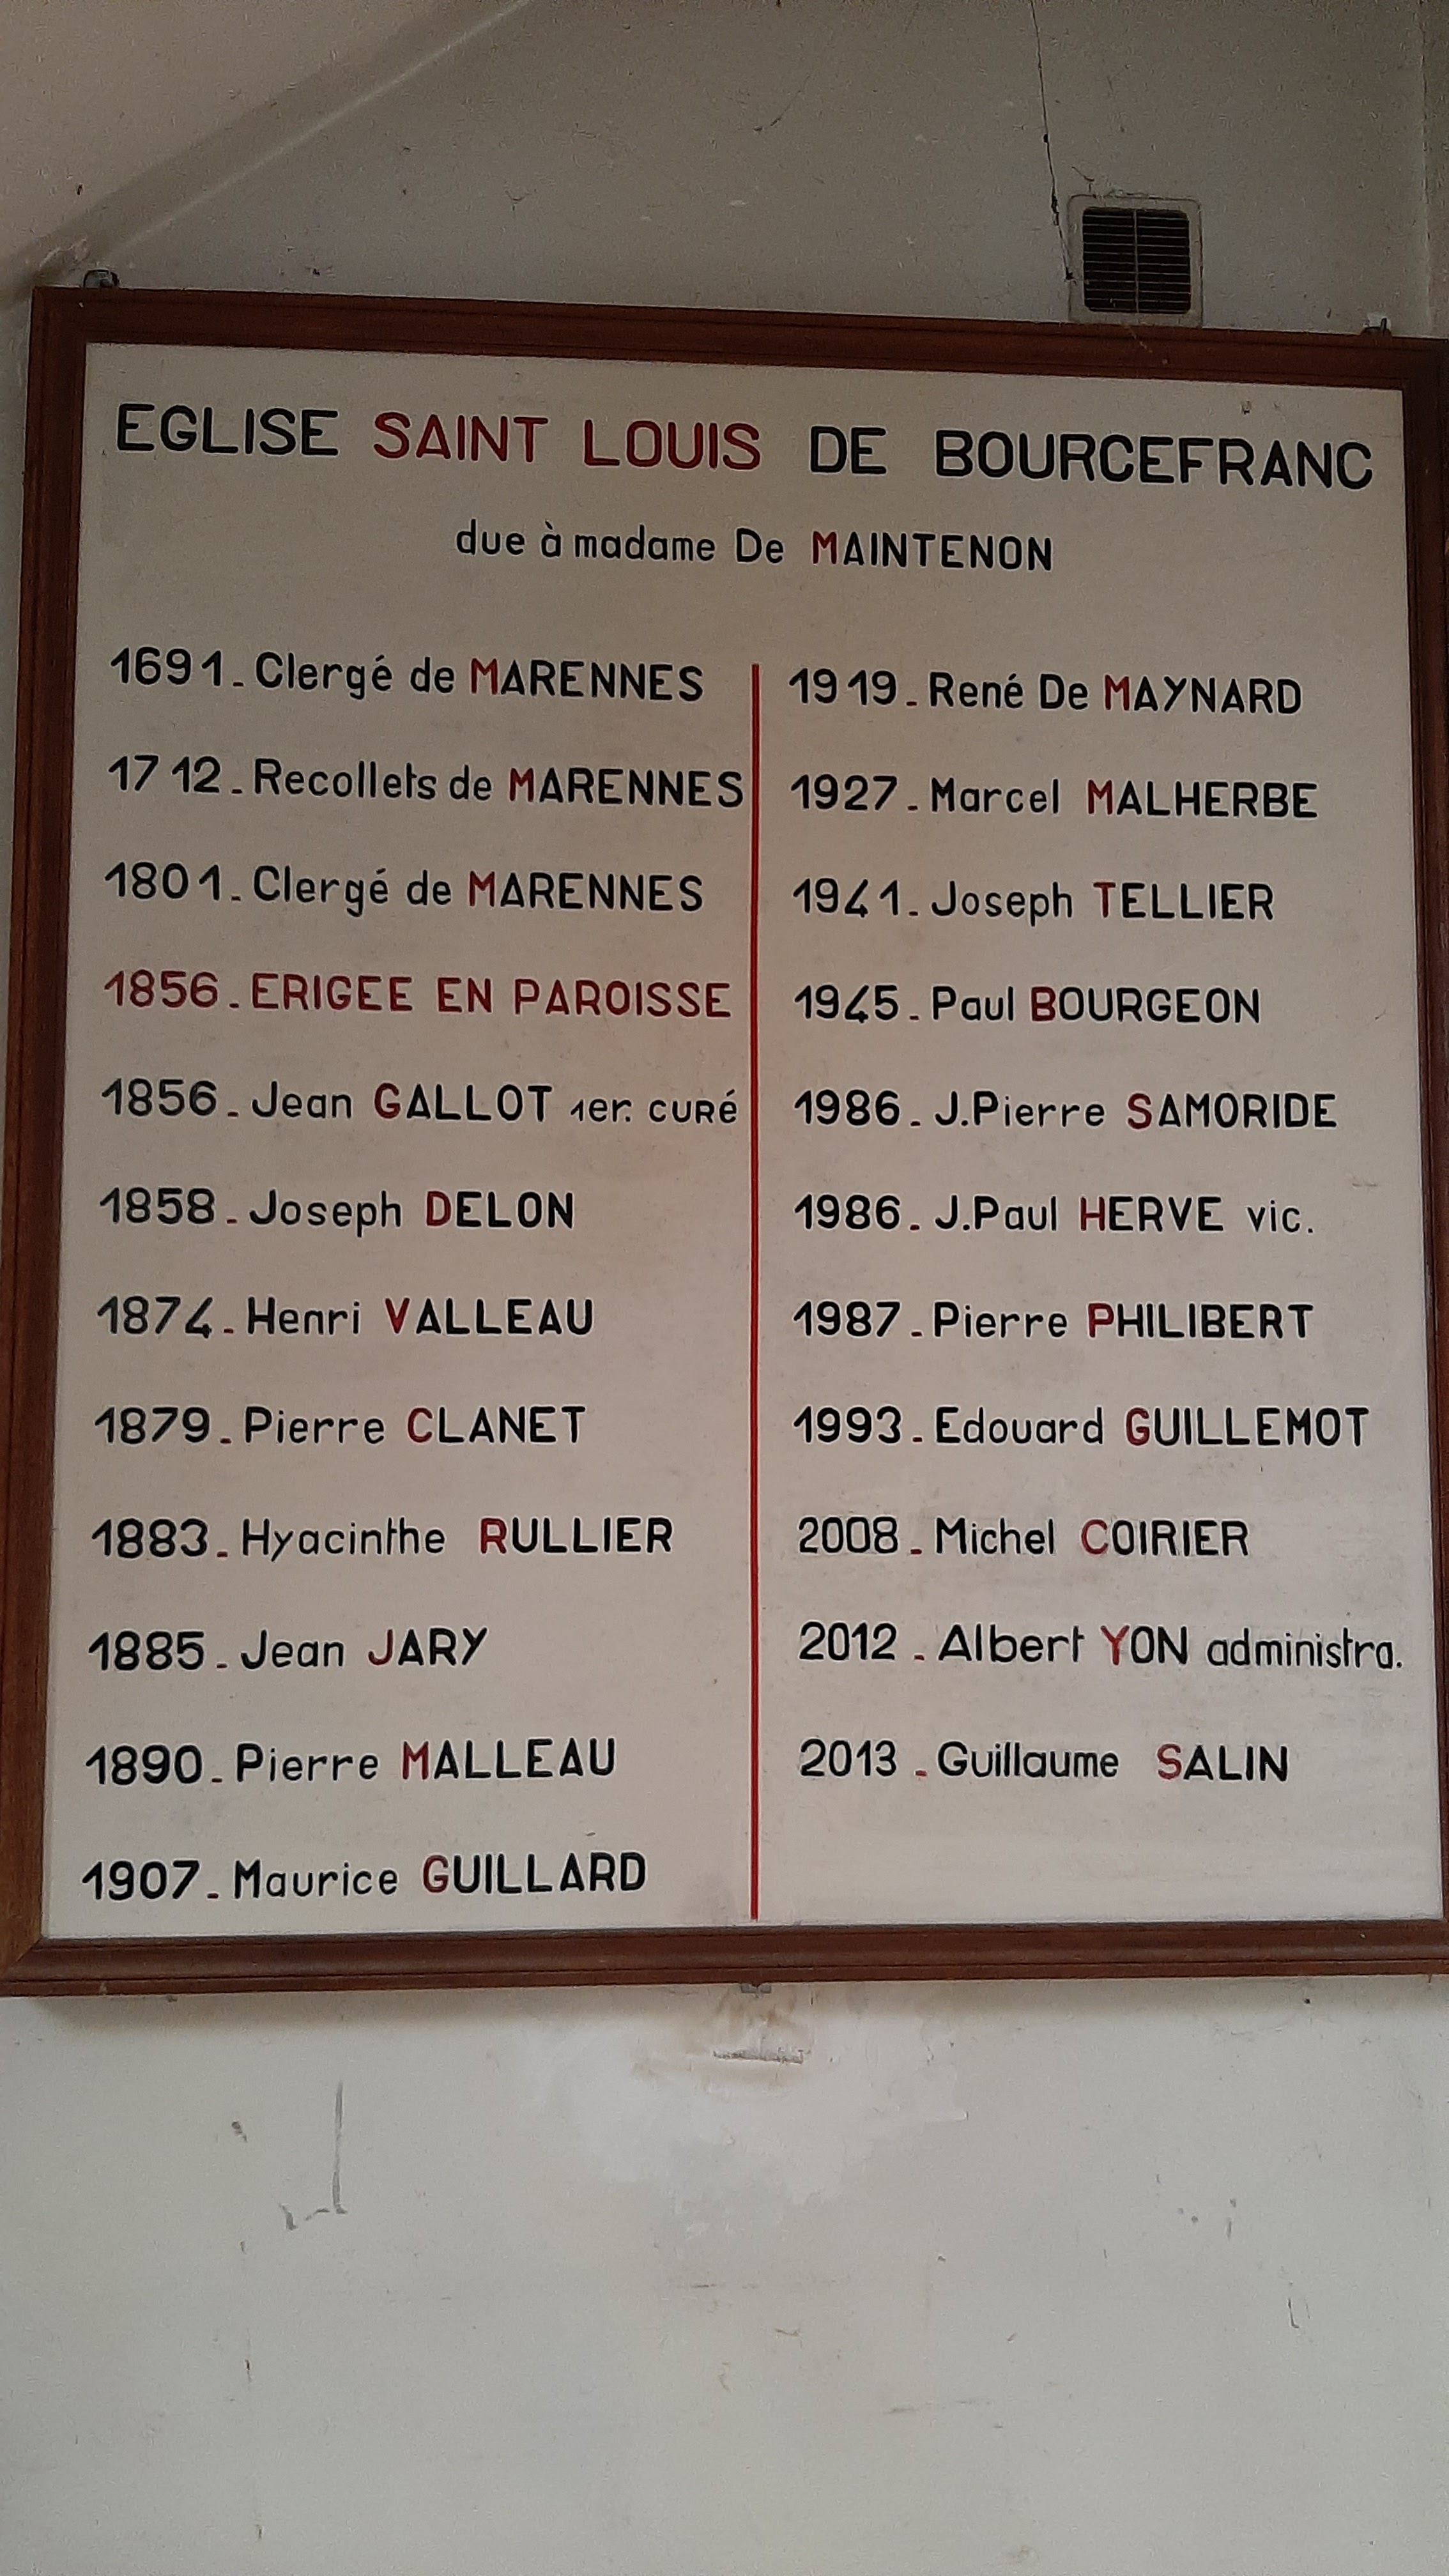 EGLISE SAINT LOUIS DE BOURCEFRANC
due à madame De MAINTENON
1691_Clergé de MARENNES
1712_Recollets de MARENNES
1801_Clergé de MARENNES
1856_ERIGEE EN PAROISSE
1856_Jean GALLOT 1er. CURé
1858_Joseph DELON
1874_Henri VALLEAU
1879_Pierre CLANET
1883_Hyacinthe RULLIER
1885_Jean JARY
1890_Pierre MALLEAU
1907_Maurice GUILLARD
1919_René De MAYNARD
1927_Marcel MALHERBE
1941_Joseph TELLIER
1945_Paul BOURGEON
1986_J.Pierre SAMORIDE
1986_J.Paul HERVE vic.
1987_Pierre PHILIBERT
1993_Edouard GUILLEMOT
2008_Michel COIRIER
2012_Albert YON administra.
2013_Guillaume SALIN